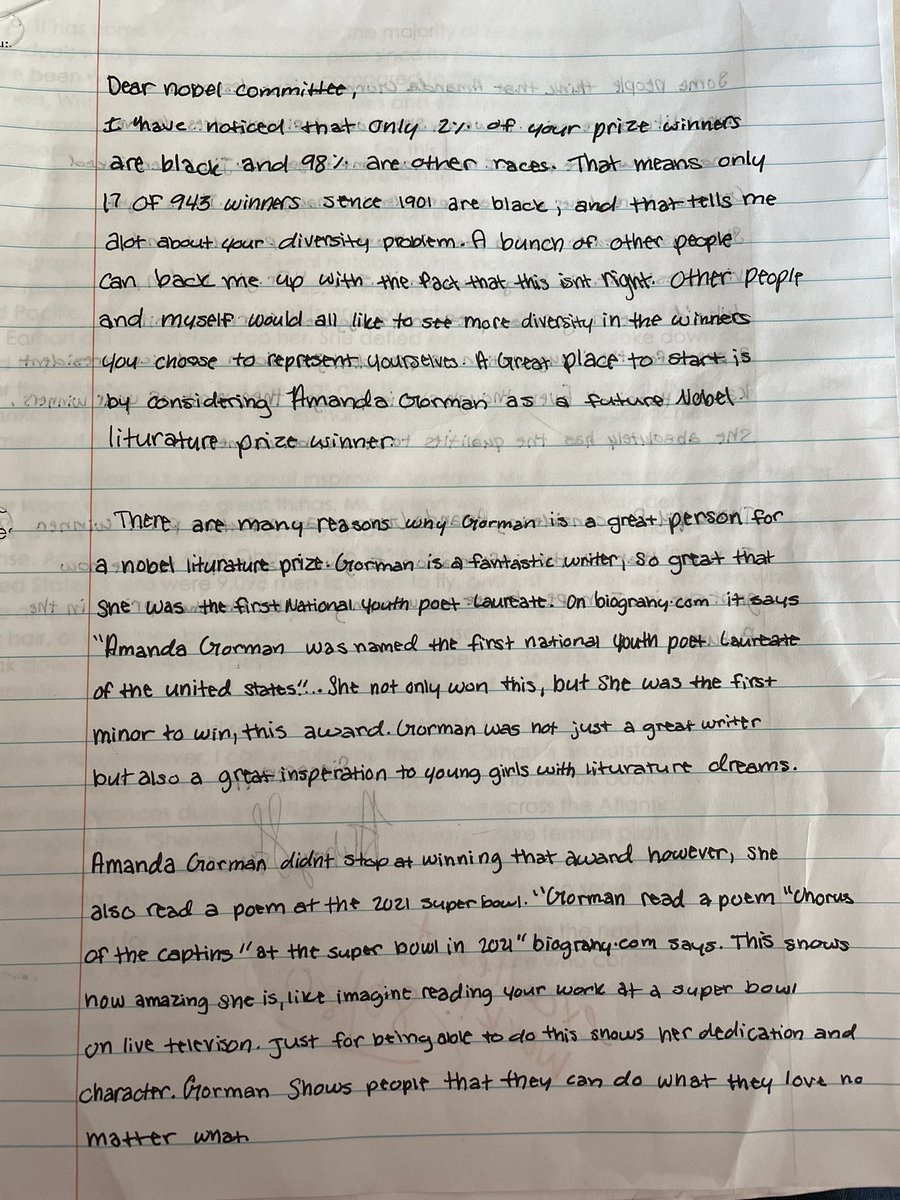 Dear nobel committee,
I have noticed that only 2% of your prize winners
are black and 98% are other races. That means only
17 OF 943 winners sence 1901 are black, and that tells me
alot about your diversity problem. A bunch of other people
can back me up with the fact that this isnt right. Other people
and myself would all like to see more diversity in the winners
you choose to represent yourselves. A Great place to start is
by considering Amanda Gorman as a future Nobel
liturature prize winner.
There are many reasons why Gorman is a great person for
a nobel liturature prize. Gorman is a fantastic writer, so great that
she was the first National Youth poet Laureate. On biograhy.com it says
"Amanda Gorman was named the first national Youth poet Laureate
of the united states"... She not only won this, but She was the first
minor to win, this award. Gorman was not just a great writer
but also a great insperation to young girls with liturature dreams.
Amanda Gorman didnt stop at winning that award however, she
also read a poem at the 2021 super bowl. "Gorman read a poem "Chorus
of the captins" at the super bowl in 2021" biograhy.com says. This shows
how amazing she is, like imagine reading your work at a super bowl
on live televison. Just for being able to do this shows her dedication and
character. Gorman Shows people that they can do what they love no
matter what